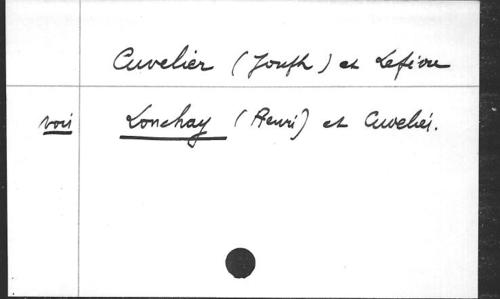 Cuvelier (Joseph) et Lefèvre
voir Lonchay (Henri) et Cuvelier.